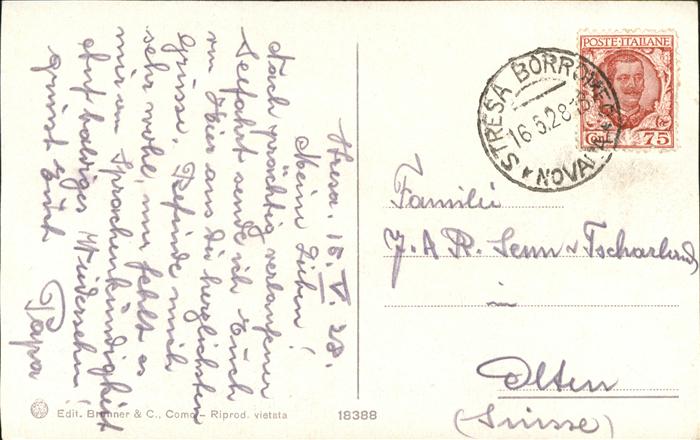 Stresa. 16. V. 28.
Meine Lieben!
Nach prächtig verlaufener
Seefahrt sende ich Euch
von Hier aus die herzlichsten
Grüsse. Befinde mich
sehr wohl, nur fehlt es
mir an Sprachenkündigkeit
Auf baldiges Wiedersehn
grüsst Euch
Papa
POSTE·ITALIANE
Cent. 75
STRESA BORROMEO
16.5.28
NOVARA
Familie
J. A. R. Senn-v. Tscharland
in
Olten
(Suisse)
Edit. Brunner & C., Como - Riprod. vietata
18388